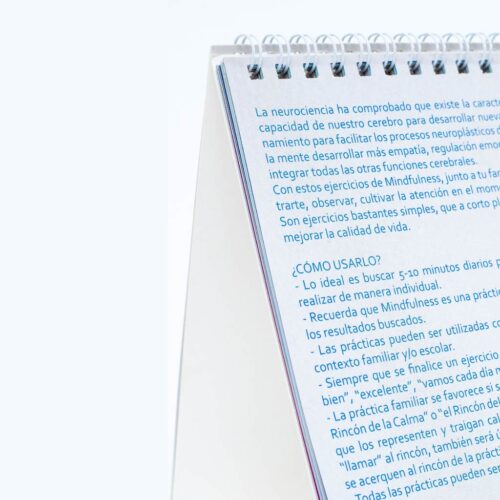 La neurociencia ha comprobado que existe la
capacidad de nuestro cerebro para desarrollar
namiento para facilitar los procesos neuroplásticos
la mente desarrollar más empatía, regulación
integrar todas las otras funciones cerebrales.
Con estos ejercicios de Mindfulness, junto a tu
trarte, observar, cultivar la atención en el
Son ejercicios bastantes simples, que a corto
mejorar la calidad de vida.
¿CÓMO USARLO?
- Lo ideal es buscar 5-10 minutos diarios
realizar de manera individual.
- Recuerda que Mindfulness es una
los resultados buscados.
- Las prácticas pueden ser utilizadas
contexto familiar y/o escolar.
- Siempre que se finalice un ejercicio
bien", "excelente", "vamos cada día
- La práctica familiar se favorece si
Rincón de la Calma" o "el Rincón del
que los representen y traigan
"llamar" al rincón, también será
se acerquen al rincón de la
Todas las prácticas pueden